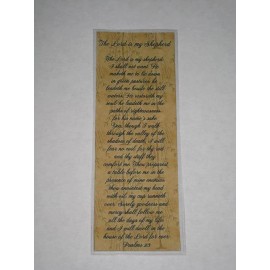 The Lord is my Shepherd
The Lord is my shepherd;
I shall not want. He
maketh me to lie down
in green pastures: he
leadeth me beside the still
waters. He restoreth my
soul: he leadeth me in the
paths of righteousness
for his name's sake.
Yea, though I walk
through the valley of the
shadow of death, I will
fear no evil: for thy rod
and thy staff they
comfort me. Thou preparest
a table before me in the
presence of mine enemies:
Thou anointest my head
with oil; my cup runneth
over. Surely goodness and
mercy shall follow me
all the days of my life:
and I will dwell in the
house of the Lord for ever.
Psalms 23